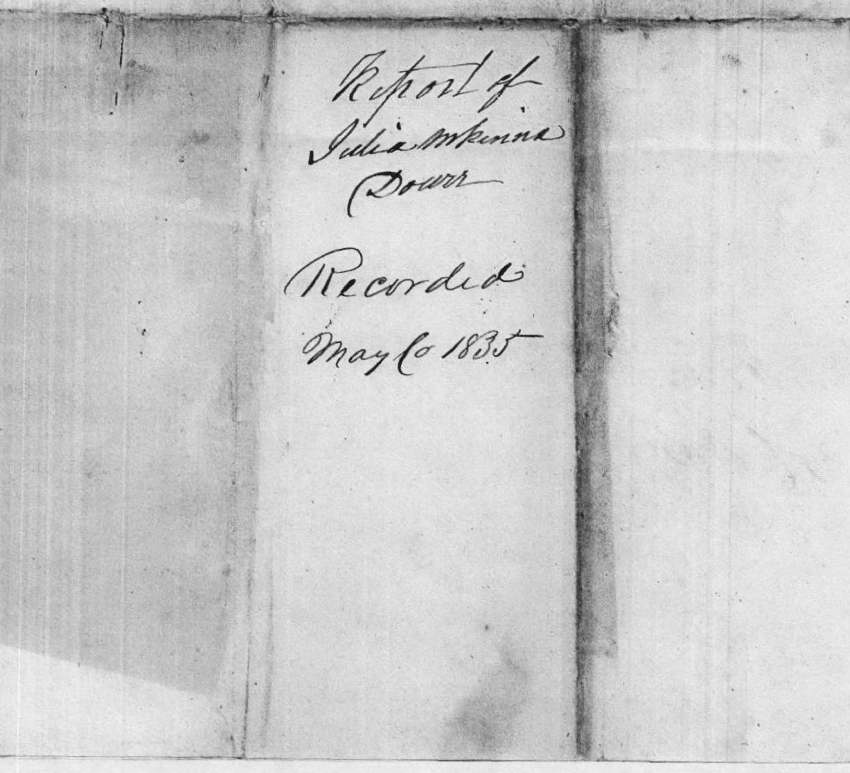 Report of
Julia McKinna
Dower
Recorded
May Co 1835